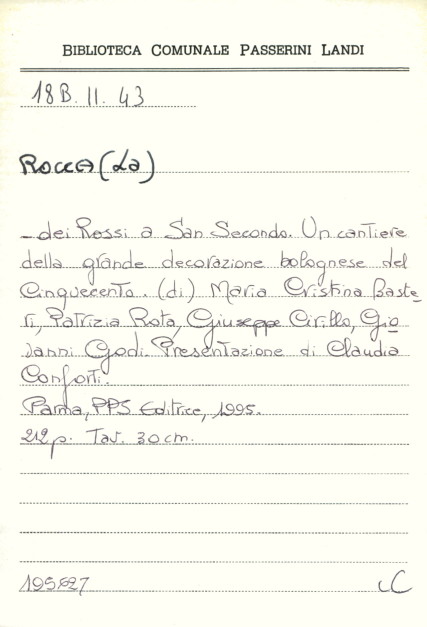 BIBLIOTECA COMUNALE PASSERINI LANDI
18B. II. 43
ROCCA (La)
- dei Rossi a San Secondo. Un cantiere
della grande decorazione bolognese del
Cinquecento. (di) Maria Cristina Baste
ri, Patrizia Rota, Giuseppe Cirillo, Gio
vanni Godi. Presentazione di Claudia
Conforti.
Parma, PPS Editrice, 1995.
212 p. Tav. 30 cm.